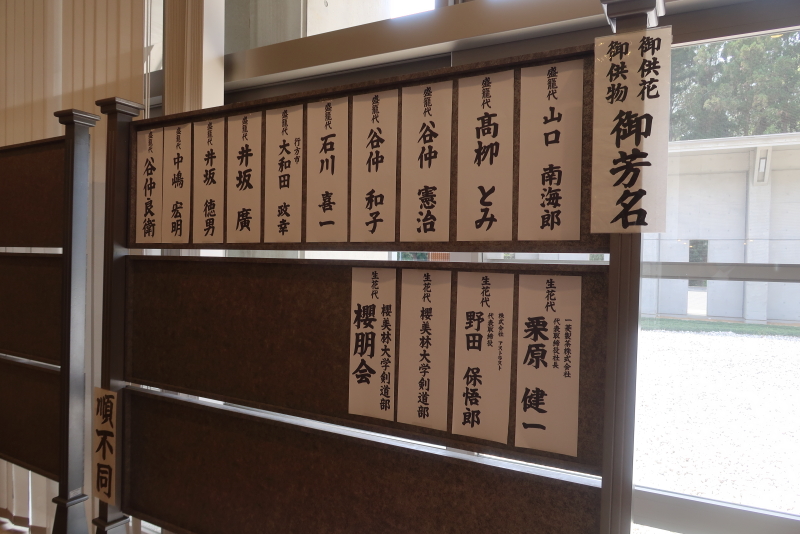 御供花
御供物
御芳名
盛籠代
山口 南海郎
盛籠代
高栁 とみ
盛籠代
谷仲 憲治
盛籠代
谷仲 和子
盛籠代
石川 喜一
盛籠代
行方市
大和田 政幸
盛籠代
井坂 廣
盛籠代
井坂 徳男
盛籠代
中嶋 宏明
盛籠代
谷仲良衛
生花代
一菱製茶株式会社
代表取締役社長
栗原 健一
生花代
株式会社 アストラスト
代表取締役
野田 保悟郎
生花代
櫻美林大学剣道部
生花代
櫻美林大学剣道部
櫻朋会
順不同